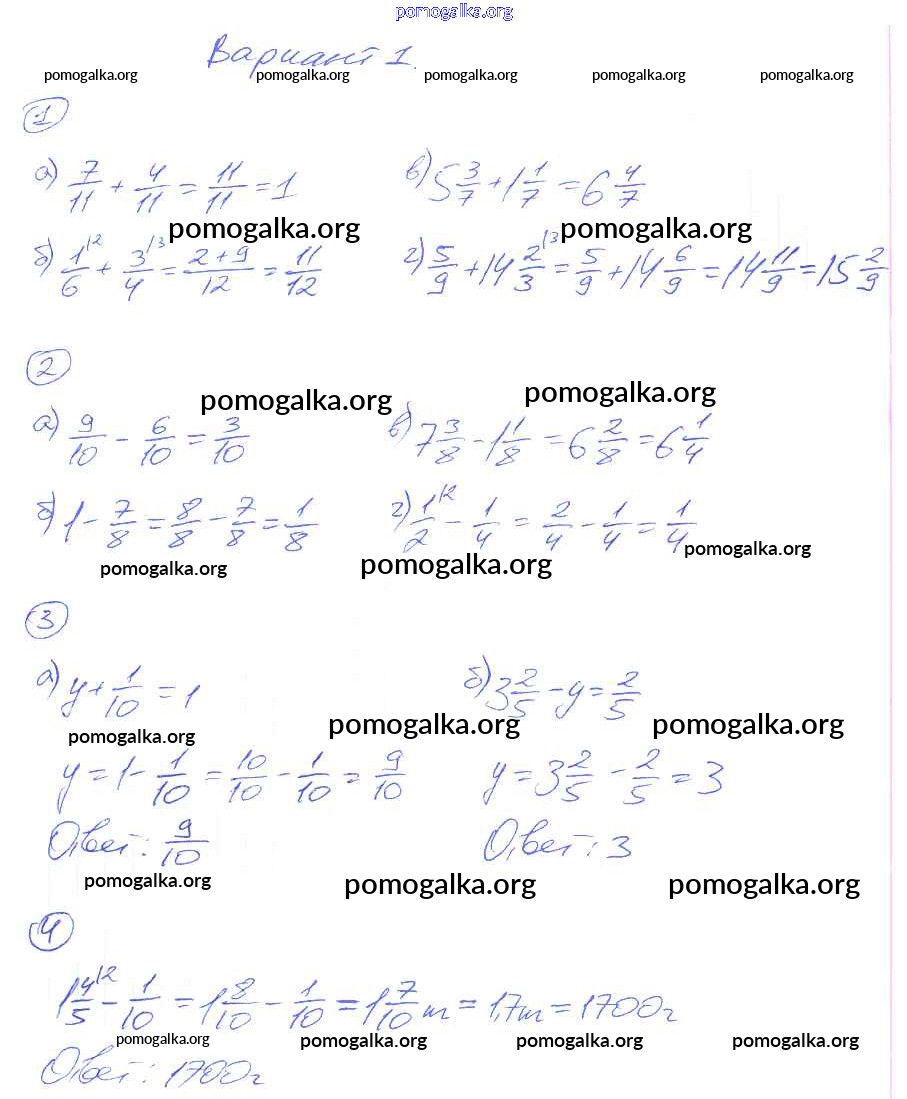 pomogalka.org
Вариант 1.
pomogalka.org pomogalka.org pomogalka.org pomogalka.org pomogalka.org
1
а) 7/11 + 4/11 = 11/11 = 1 в) 5 3/7 + 1 1/7 = 6 4/7
pomogalka.org pomogalka.org
б) 1/6 |2 + 3/4 |3 = (2+9)/12 = 11/12 г) 5/9 + 14 2/3 |3 = 5/9 + 14 6/9 = 14 11/9 = 15 2/9
2
pomogalka.org pomogalka.org
а) 9/10 - 6/10 = 3/10 в) 7 3/8 - 1 1/8 = 6 2/8 = 6 1/4
б) 1 - 7/8 = 8/8 - 7/8 = 1/8 г) 1/2 |2 - 1/4 = 2/4 - 1/4 = 1/4
pomogalka.org pomogalka.org pomogalka.org
3
а) y + 1/10 = 1 б) 3 2/5 - y = 2/5
pomogalka.org pomogalka.org pomogalka.org
y = 1 - 1/10 = 10/10 - 1/10 = 9/10 y = 3 2/5 - 2/5 = 3
Ответ: 9/10 Ответ: 3
pomogalka.org pomogalka.org pomogalka.org
4
1 4/5 |2 - 1/10 = 1 8/10 - 1/10 = 1 7/10 т = 1,7т = 1700г
pomogalka.org pomogalka.org pomogalka.org pomogalka.org
Ответ: 1700г